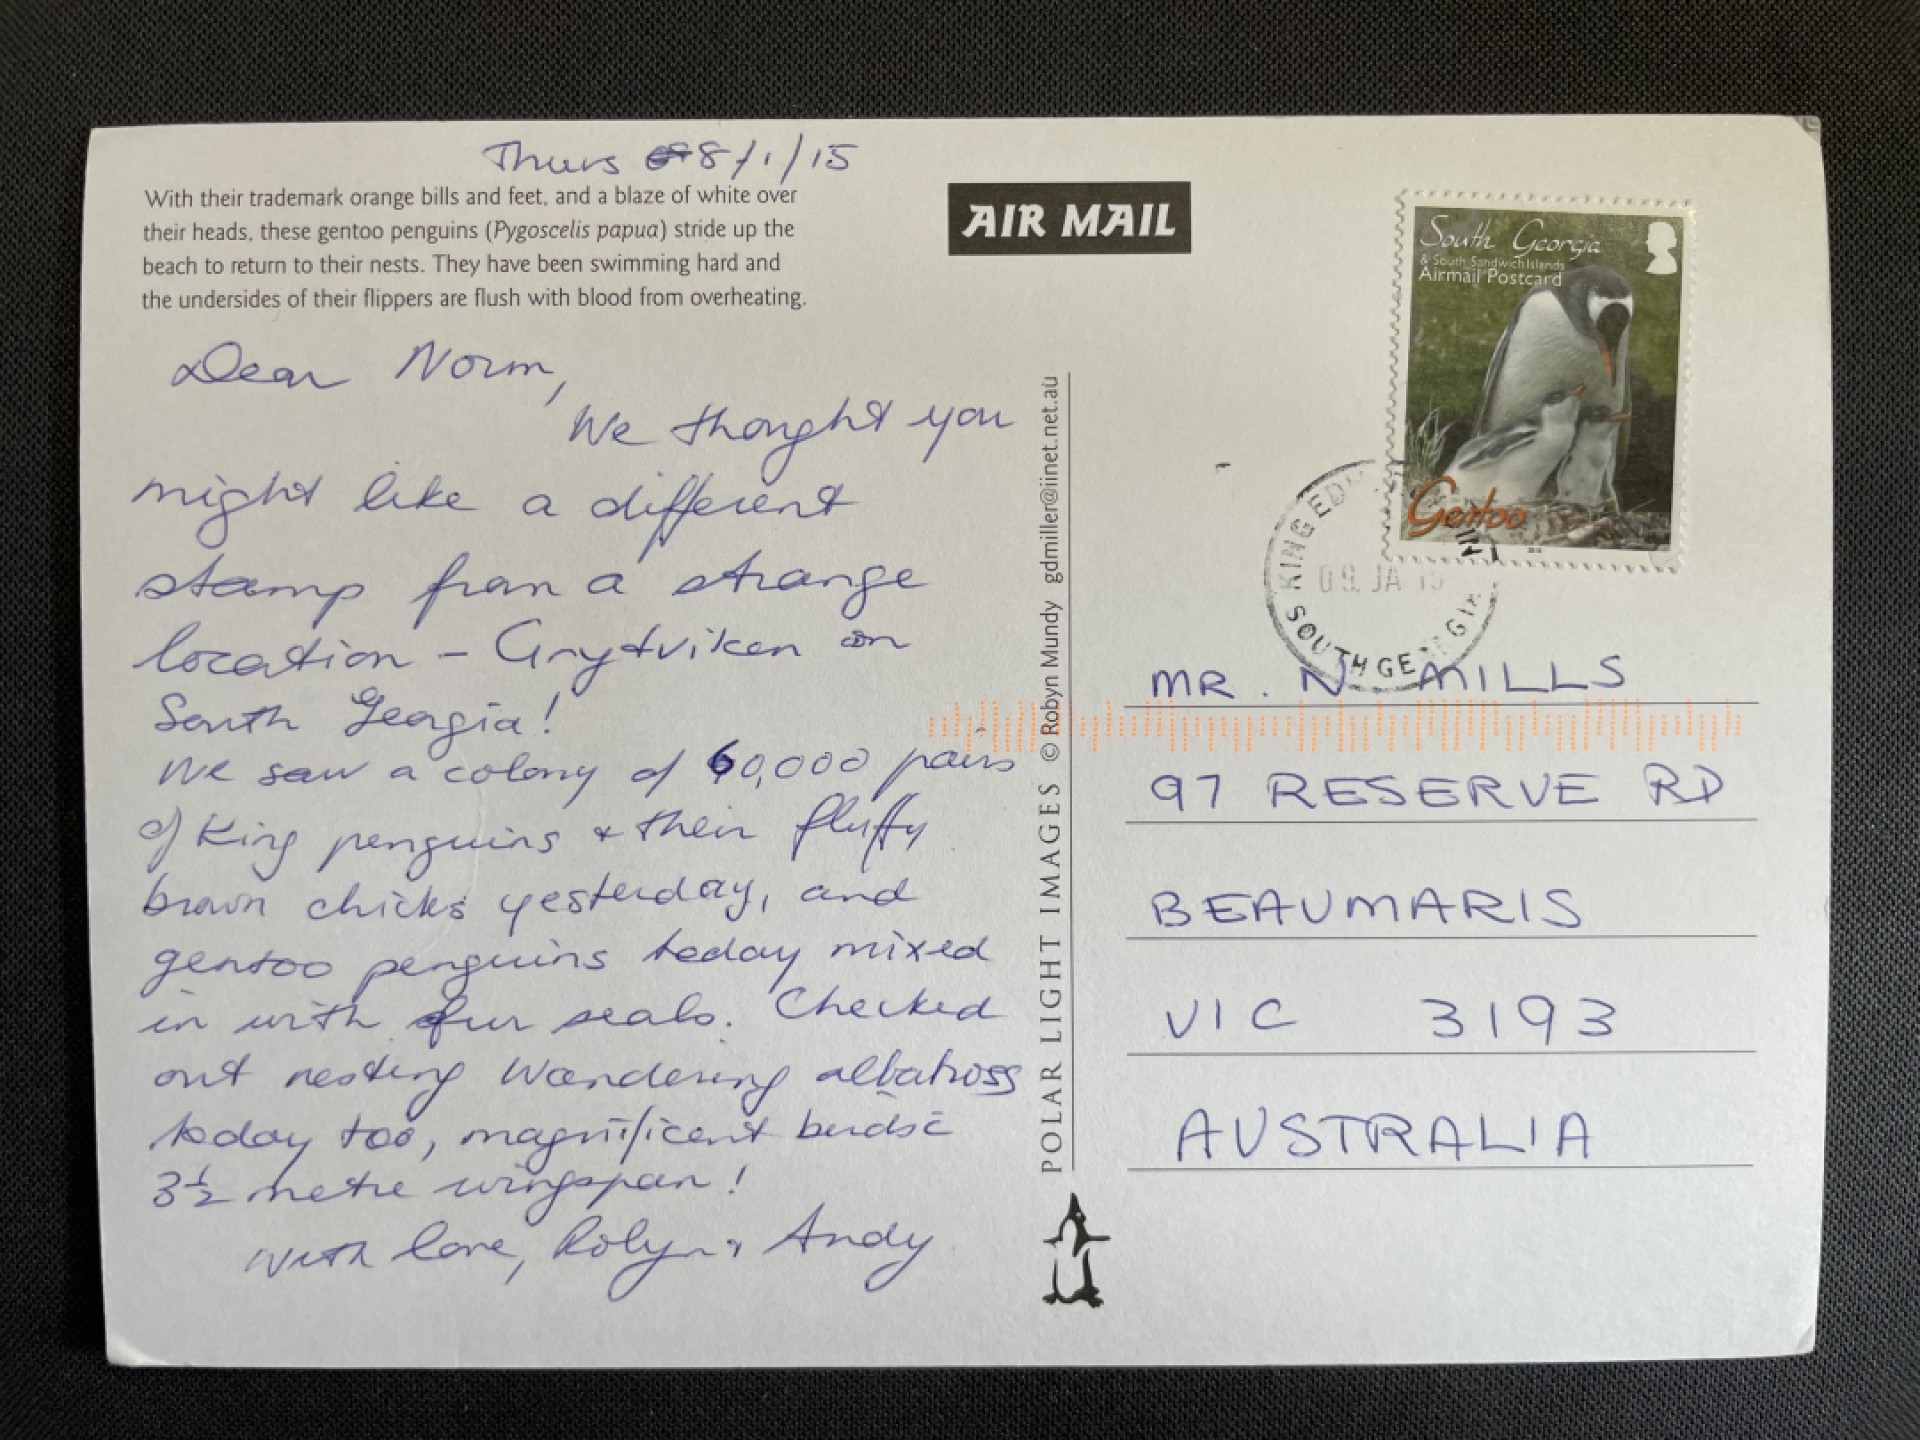 Thurs 8/1/15
With their trademark orange bills and feet, and a blaze of white over
their heads, these gentoo penguins (Pygoscelis papua) stride up the
beach to return to their nests. They have been swimming hard and
the undersides of their flippers are flush with blood from overheating.
Dear Norm,
We thought you
might like a different
stamp from a strange
location – Grytviken on
South Georgia!
We saw a colony of 60,000 pairs
of King penguins & their fluffy
brown chicks yesterday, and
gentoo penguins today mixed
in with fur seals. Checked
out nesting Wandering albatross
today too, magnificent birds c̄
3½ metre wingspan!
With love, Robyn & Andy
POLAR LIGHT IMAGES © Robyn Mundy gdmiller@iinet.net.au
AIR MAIL
South Georgia
& South Sandwich Islands
Airmail Postcard
Gentoo
KING EDW
09 JA 15
SOUTH GEORGIA
MR. N MILLS
97 RESERVE RD
BEAUMARIS
VIC 3193
AUSTRALIA